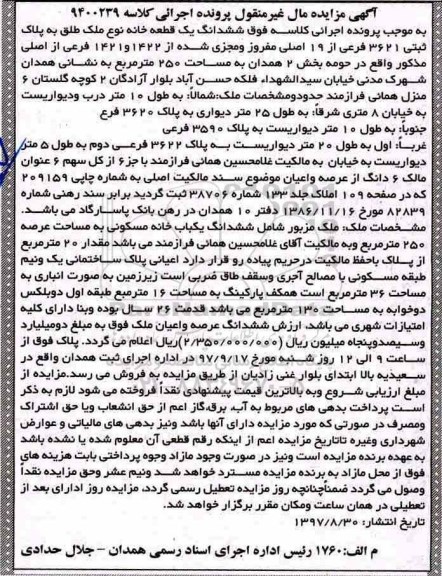 آگهی مزایده مال غیرمنقول پرونده اجرائی کلاسه ۹۴۰۰۲۳۹
به موجب پرونده اجرائی کلاسه فوق ششدانگ یک قطعه خانه نوع ملک طلق به پلاک
ثبتی ۳۶۲۱ فرعی از ۱۹ اصلی مفروز ومجزی شده از ۱۴۲۲و۱۴۲۱ فرعی از اصلی
مذکور واقع در حومه بخش ۲ همدان به مساحت ۲۵۰ مترمربع به نشانی همدان
شهرک مدنی خیابان سیدالشهداء فلکه حسن آباد بلوار آزادگان ۲ کوچه گلستان ۶
منزل همائی فرازمند حدودومشخصات ملک:شمالاً: به طول ۱۰ متر درب ودیواریست
به خیابان ۸ متری شرقاً: به طول ۲۵ متر دیواری به پلاک ۳۶۲۰ فرع
جنوباً: به طول ۱۰ متر دیواریست به پلاک ۳۵۹۰ فرعی
غرباً: اول به طول ۲۰ متر دیواریست به پلاک ۳۶۲۲ فرعی دوم به طول ۵ متر
دیواریست به خیابان به مالکیت غلامحسین همائی فرازمند با جزء ۶ از کل سهم ۶ عنوان
مالک ۶ دانگ از عرصه واعیان موضوع سند مالکیت اصلی به شماره چاپی ۲۰۹۱۵۹
که در صفحه ۱۰۹ املاک جلد ۱۲۳ شماره ۳۸۷۰۶ ثبت گردید برابر سند رهنی شماره
۸۲۸۳۹ مورخ ۱۳۸۶/۱۱/۱۶ دفتر ۱۰ همدان در رهن بانک پاسارگاد می باشد.
مشخصات ملک: ملک مزبور شامل ششدانگ یکباب خانه مسکونی به مساحت عرصه
۲۵۰ مترمربع وبه مالکیت آقای غلامحسین همائی فرازمند می باشد مقدار ۲۰ مترمربع
از پلاک باحفظ مالکیت درحریم پیاده رو قرار دارد اعیانی پلاک ساختمانی یک ونیم
طبقه مسکونی با مصالح آجری وسقف طاق ضربی است زیرزمین به صورت انباری به
مساحت ۳۶ مترمربع است همکف پارکینگ به مساحت ۱۶ مترمربع طبقه اول دوبلکس
دوخوابه به مساحت ۱۳۰ مترمربع می باشد قدمت ۲۶ سال بوده وبنا دارای کلیه
امتیازات شهری می باشد، ارزش ششدانگ عرصه واعیان ملک فوق به مبلغ دومیلیارد
وسیصدوپنجاه میلیون ریال (۲/۳۵۰/۰۰۰/۰۰۰)ریال اعلام می گردد. پلاک فوق از
ساعت ۹ الی ۱۲ روز شنبه مورخ ۹۷/۹/۱۷ در اداره اجرای ثبت همدان واقع در
سعیدیه بالا ابتدای بلوار غنی زادیان از طریق مزایده به فروش می رسد.مزایده از
مبلغ ارزیابی شروع وبه بالاترین قیمت پیشنهادی نقداً فروخته می شود لازم به ذکر
است پرداخت بدهی های مربوط به آب، برق،گاز اعم از حق انشعاب ویا حق اشتراک
ومصرف در صورتی که مورد مزایده دارای آنها باشد ونیز بدهی های مالیاتی و عوارض
شهرداری وغیره تاتاریخ مزایده اعم از اینکه رقم قطعی آن معلوم شده یا نشده باشد
به عهده برنده مزایده است ونیز در صورت وجود مازاد وجوه پرداختی بابت هزینه های
فوق از محل مازاد به برنده مزایده مسترد خواهد شد ونیم عشر وحق مزایده نقداً
وصول می گردد ضمناًچنانچه روز مزایده تعطیل رسمی گردد، مزایده روز ادارای بعد از
تعطیلی در همان ساعت ومکان مقرر برگزار خواهد شد.
تاریخ انتشار: ۱۳۹۷/۸/۳۰
م الف:۱۷۶۰ رئیس اداره اجرای اسناد رسمی همدان - جلال حدادی